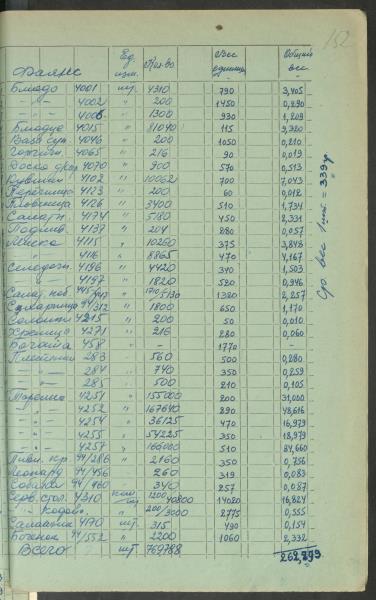 152
Фаянс Ед. изм. Кол-во Вес единицы Общий вес
Блюдо 4001 шт. 4310 790 3,405
-"- 4002 " 200 1450 0,290
-"- 4005 " 1300 930 1,209
Блюдце 4015 " 81040 115 9,320
Ваза суп. 4046 " 200 1050 0,210
4065 " 216 90 0,019
Доска 4070 " 900 570 0,513
Кувшин 4102 " 10062 700 7,043
4123 " 200 60 0,012
4126 " 3400 510 1,734
Салатн. 4174 " 5180 450 2,331
4137 " 204 280 0,057
Миска 4115 " 10260 375 3,848
" 4116 " 8865 470 4,167
Селедочн. 4196 " 4420 340 1,503
-"- 4197 " 1820 520 0,946
1380 2,257
Сухарница 44/312 " 1800 650 1,170
4215 " 200 50 0,010
4271 " 216 280 0,060
458 " - 1770 -
283 - 560 500 0,280
-"- 284 " 740 350 0,259
-"- 285 " 500 210 0,105
Тарелка 4251 " 155000 200 31,000
-"- 4252 " 167640 290 48,616
-"- 4254 " 36125 470 16,979
-"- 4255 " 54225 350 18,979
-"- 4257 " 166000 510 84,660
Пивн. кр. 44/286 " 2160 350 0,756
Леопард 44/456 - 260 319 0,083
Собачка 44/460 - 340 257 0,087
Серв. стол. 4310 1200 40800 14020 16,824
200/3000 2775 0,555
4170 шт. 315 490 0,154
Бочонок 44/552 " 2200 1060 2,332
Всего шт. 769788 262,299
Ср. вес 1 шт. = 339 гр